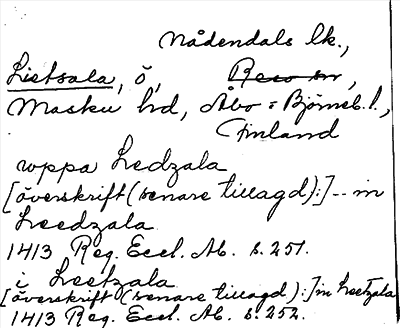 Nådendals lk.,
Lietsala, ö, Reso sn,
Masku hd, Åbo = Björneb. l.,
Finland
uppa Ledzala
[överskrift (senare tillagd):] -- in
Leedzala
1413 Reg. Eccl. Ab. s. 251.
i Leetzala
[överskrift (senare tillagd):] in Leetzala
1413 Reg. Eccl. Ab. s. 252.